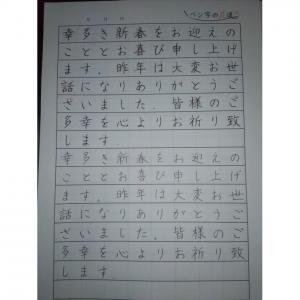 ペン字の
幸多き新春をお迎えの
こととお喜び申し上げ
ます。昨年は大変お世
話になりありがとうご
ざいました。皆様のご
多幸を心よりお祈り致
します。
幸多き新春をお迎えの
こととお喜び申し上げ
ます。昨年は大変お世
話になりありがとうご
ざいました。皆様のご
多幸を心よりお祈り致
します。